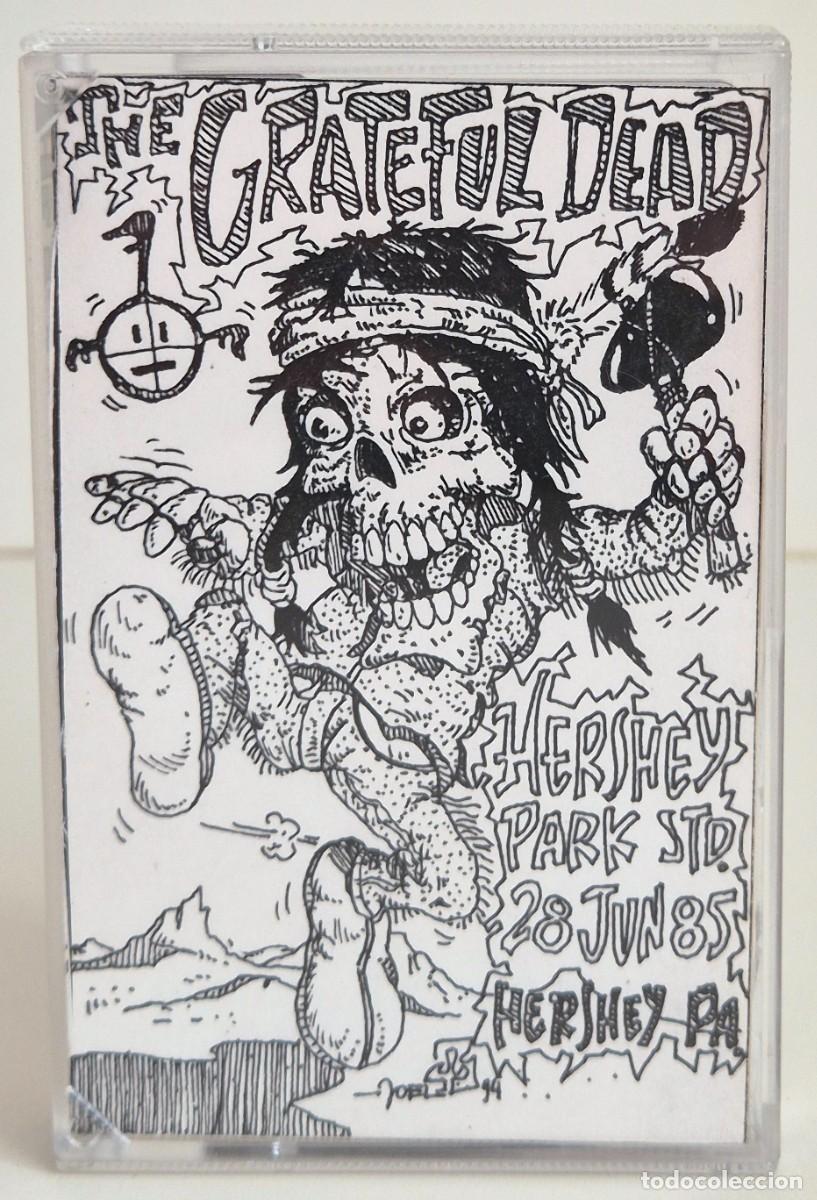 THE GRATEFUL DEAD
HERSHEY
PARK STD.
28 JUN 85
HERSHEY PA.
94
todocoleccion